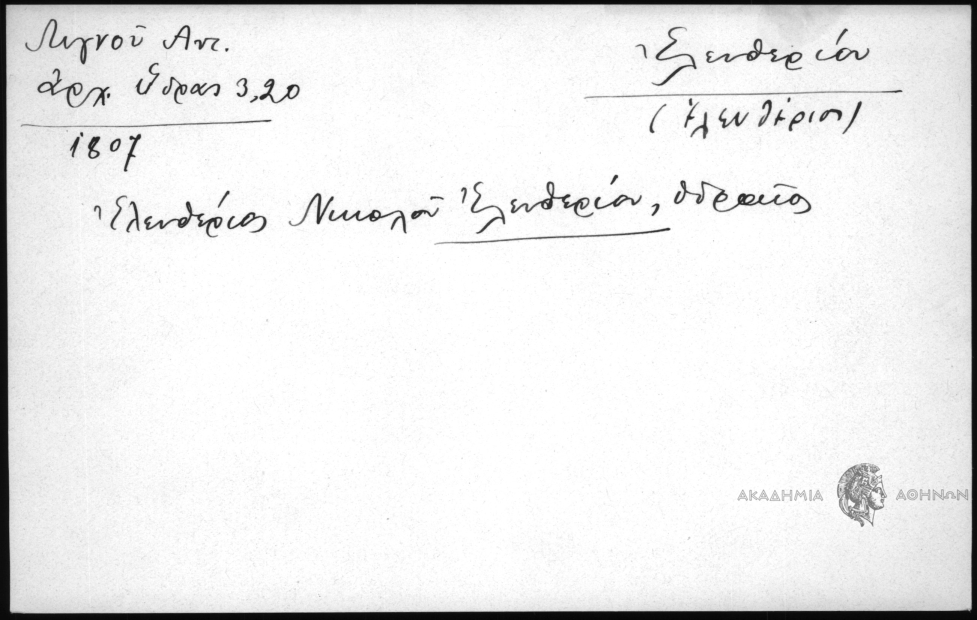 Λιγνοῦ Αντ.
ἀρχ. Ὕδρας 3,20
1807
Ἐλευθερίου
(Ἐλευθέριος)
Ἐλευθέριος Νικολοῦ Ἐλευθερίου, Ὑδραῖος
ΑΚΑΔΗΜΙΑ ΑΘΗΝΩΝ